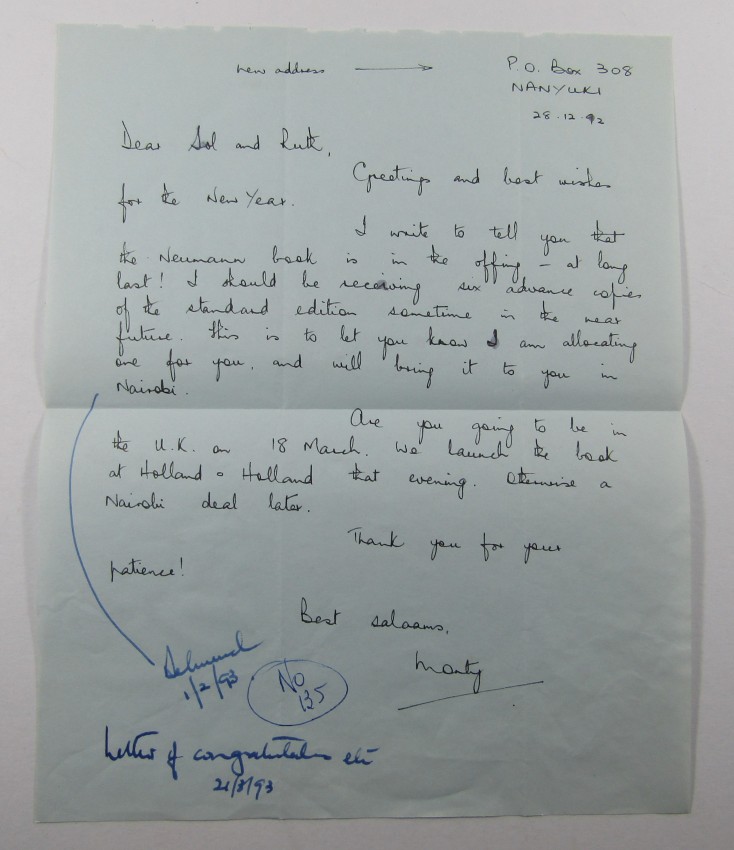 new address → P.O. Box 308
NANYUKI
28.12.92
Dear Sol and Ruth,
Greetings and best wishes
for the New Year.
I write to tell you that
the Neumann book is in the offing - at long
last! I should be receiving six advance copies
of the standard edition sometime in the near
future. This is to let you know I am allocating
one for you, and will bring it to you in
Nairobi.
Are you going to be in
the U.K. on 18 March. We launch the book
at Holland & Holland that evening. Otherwise a
Nairobi deal later.
Thank you for your
patience!
Best salaams,
Monty
1/2/93
No
135
Letter of congratulations etc
21/3/93